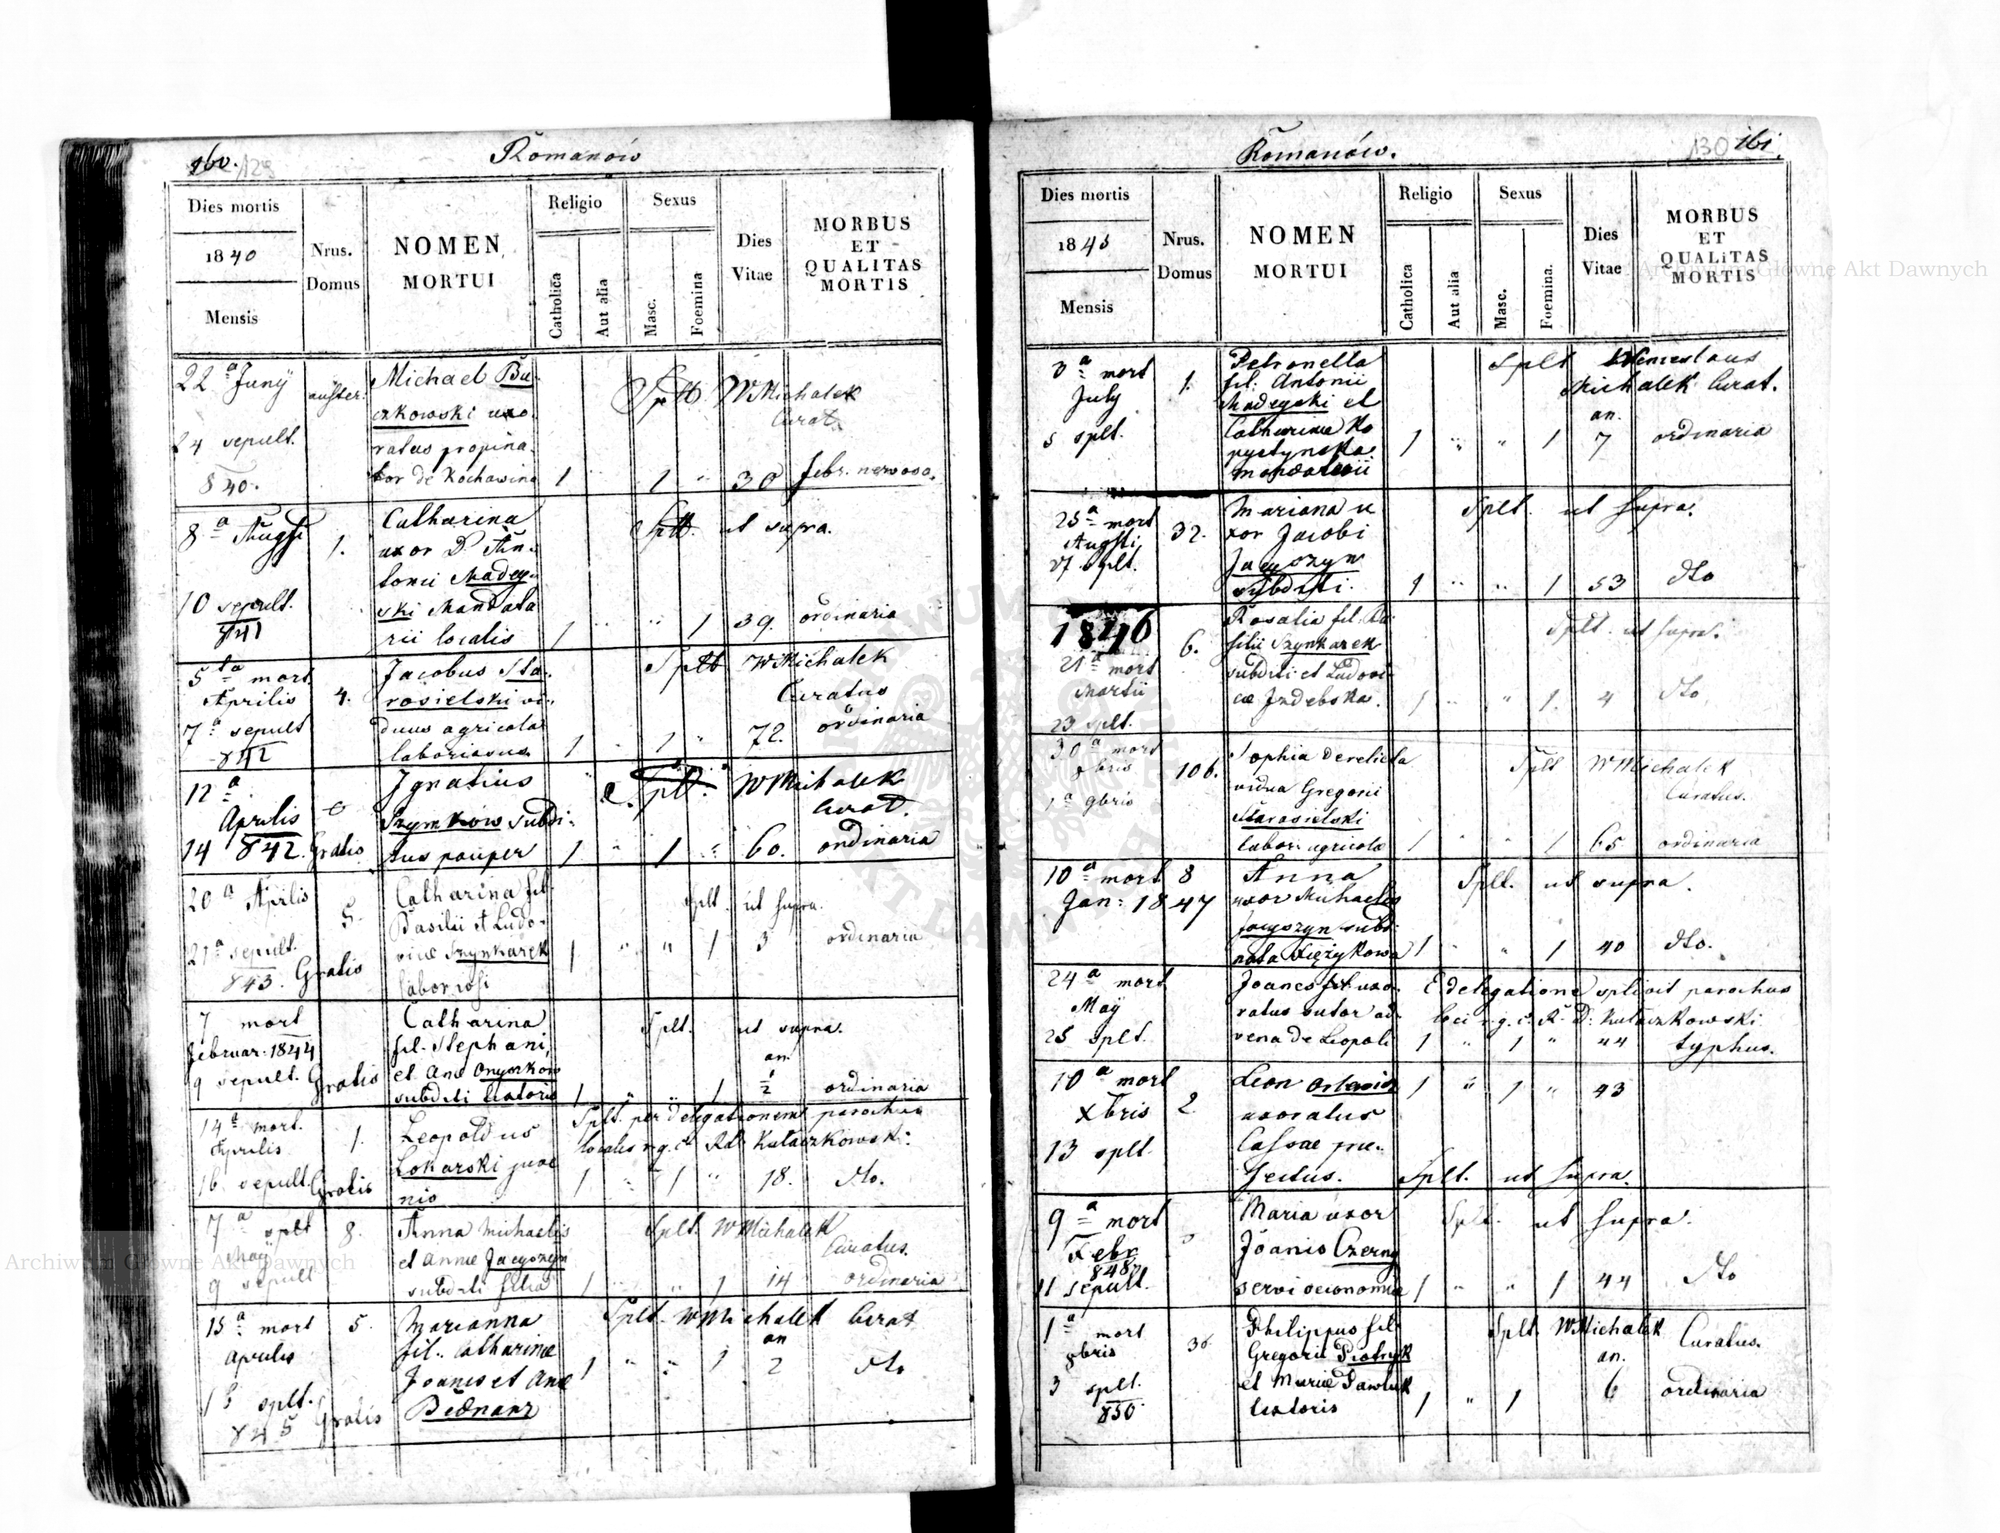 160. 129
Romanów
Dies mortis
1840
Mensis
Nrus.
Domus
NOMEN
MORTUI
Religio
Catholica
Aut alia
Sexus
Masc.
Foemina
Dies
Vitae
MORBUS
ET
QUALITAS
MORTIS
22 a Junÿ
24 sepult.
840.
Michael Bu-
czkowski uxo-
ratus propina-
tor de Kochawina
Splt. WMichalek
Curat.
1 " 1 " 30 febr. nervosa.
8 a Augsti
10 sepult.
841
1.
Catharina
uxor D. An-
tonii Madey-
ski Mandata
rii localis
Splt. ut supra.
1 " " 1 39. ordinaria
5 ta mort
Aprilis
7 a sepult
842
4.
Jacobus Sta-
rosielski vi-
duus agricola
laboriosus
Splt WMichalek
Curatus
1 " 1 " 72. ordinaria
12 a
Aprilis
14 842. Gratis
Ignatius
Szymków subdi-
tus pauper
Splt. WMichalek
Curat.
1 " 1 " 60. ordinaria
20 a Aprilis
21 a sepult.
843. Gratis
5.
Catharina fil.
Basilii et Ludo-
vicae Szynkarek
laboriosi
Splt. ut supra.
1 " " 1 3 ordinaria
7 mort
Februar. 1844
9 sepult. Gratis
Catharina
fil. Stephani,
et Anae
subditi
Splt. ut supra.
an.
1 " " 1 1/2 ordinaria
14 a mort.
Aprilis
16 sepult. Gratis
1.
Leopoldus
Lokarski juve
nis
Splt. per delegationem parochus
localis r. g. c. Rd Kulaczkowski
1 " 1 " 18. dto.
7 a splt
Maÿ
9 sepult
8.
Anna Michaelis
et Annae Jacyszyn
subditi filia
Splt. WMichalek
Curatus.
1 " " 1 14 ordinaria
15 a mort
Aprilis
splt.
845 Gratis
5.
Marianna
fil. Catharinae
Joanis et Anae
Bednarz
Splt. WMichalek Curat
an
1 " " 1 2 dto
Romanów.
130 161.
Dies mortis
1845
Mensis
Nrus.
Domus
NOMEN
MORTUI
Religio
Catholica
Aut alia
Sexus
Masc.
Foemina.
Dies
Vitae
MORBUS
ET
QUALITAS
MORTIS
3 a mort
July
5 splt.
1.
Petronella
fil. Antonii
Madeyski et
Catharinae Ko
pystynska
mandatarii
Splt Wenceslaus
Michalek Curat.
an.
1 " " 1 7 ordinaria
25 a mort
Augsti
27 splt.
32.
Mariana u
xor Jacobi
Jacyszyn
subditi.
Splt. ut supra.
1 " " 1 53 dto
1846
21 a mort
Martii
23 splt.
6.
Rosalia fil. Ba
silii Szynkarek
subditi et Ludovi
cae Indebska.
Splt. ut supra.
1 " " 1. 4 dto
30 a mort
8bris
1 a 9bris
106.
Sophia derelicta
vidua Gregorii
Starosielski
labori. agricolae
Splt WMichalek
Curatus.
1 " " 1 65 ordinaria
10 a mort 8
Jan: 1847
Anna
uxor Michaelis
Jacyszyn subd.
nata
Splt. ut supra.
1 " " 1 40 dto.
24 a mort
Maÿ
25 splt.
Joanes uxo-
ratus sutor ad-
vena de Leopoli
E delegatione splivit parochus
loci r. g. c. R. D. Kulaczkowski
1 " 1 " 44 typhus.
10 a mort
Xbris
13 splt.
2.
Leon
uxoratus
Cassae prae-
fectus.
1 " 1 " 43
Splt. ut supra.
9 a mort
Febr
848
11 sepult.
Maria uxor
Joanis Czerny
servi oeconomiae
Splt. ut supra.
1 " " 1 44 dto
1 a mort
8bris
3 splt.
850
36
Philippus fil.
Gregorii Piotryk
et Mariae Pawluk
textoris
Splt. WMichalek Curatus.
an.
1 " 1 6 ordinaria
Archiwum Główne Akt Dawnych
Archiwum Główne Akt Dawnych